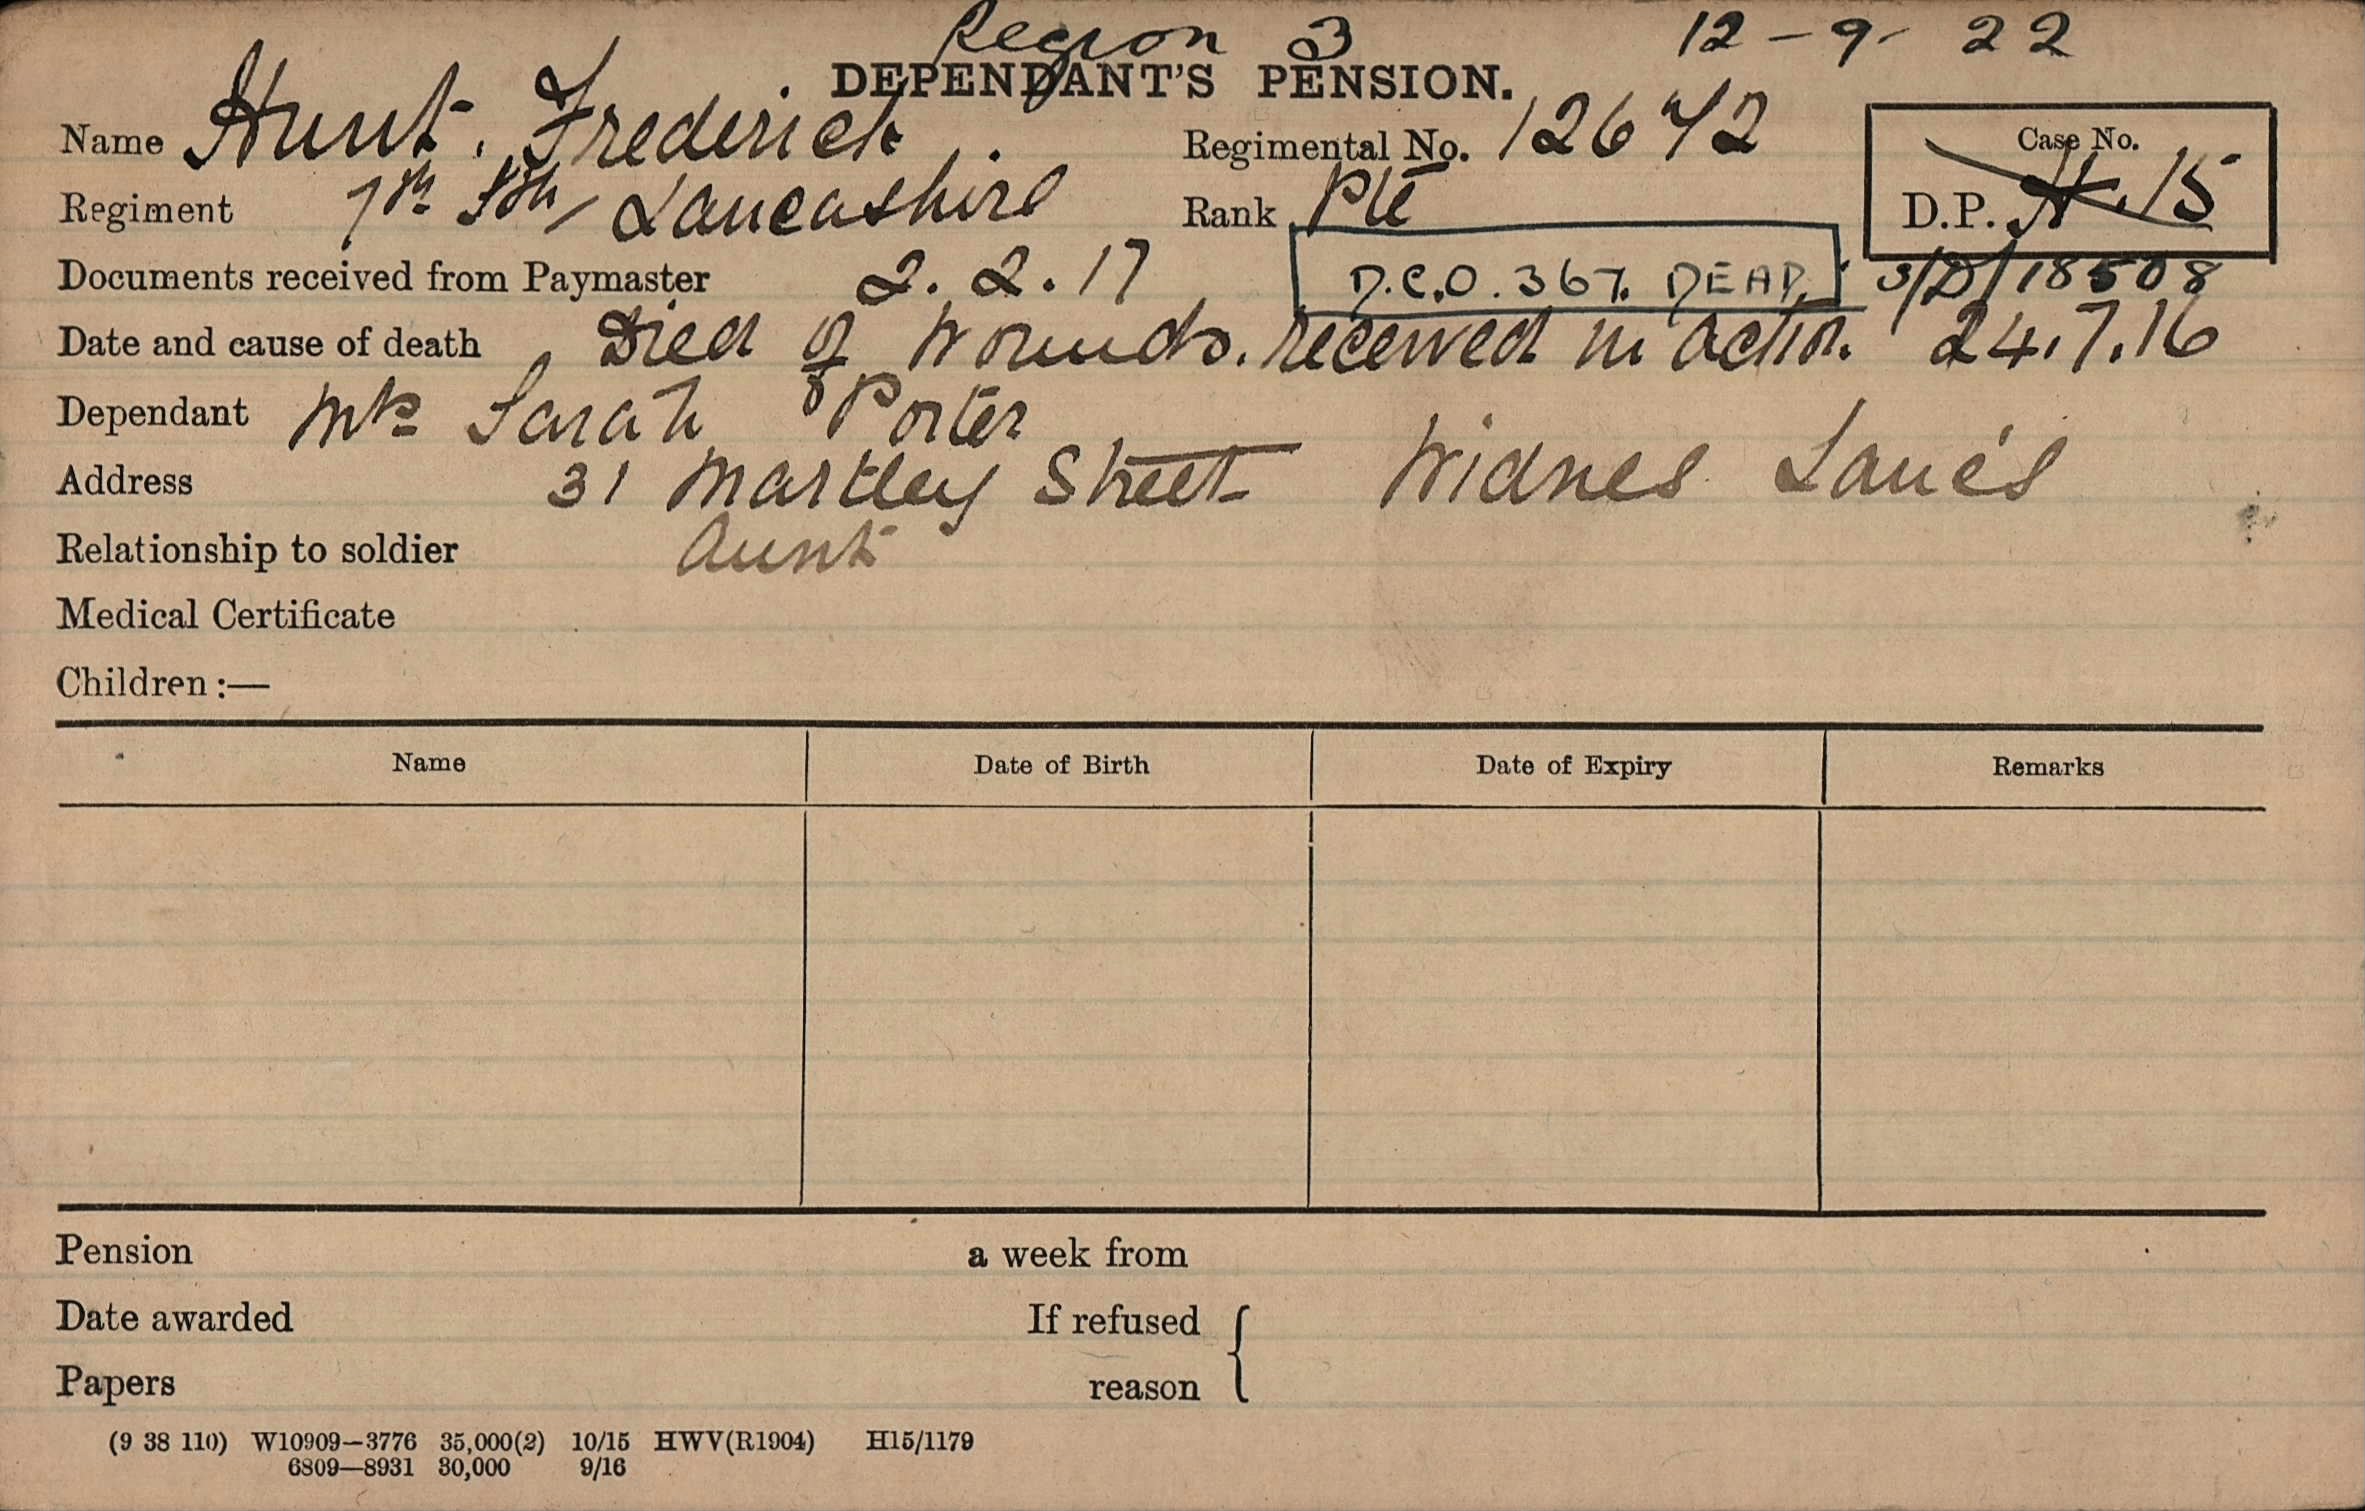 Region 3 12-9-22
DEPENDANT'S PENSION.
Name Hunt. Frederick Regimental No. 12642 Case No.
Regiment 7th Sth Lancashire Rank Pte D.P. H.15
Documents received from Paymaster 2.2.17 D.C.O. 367. DEAD. 3/D/18508
Date and cause of death Died of Wounds. received in action. 24.7.16
Dependant Mrs Sarah Porter
Address 31 Martley Street Widnes Lancs
Relationship to soldier Aunt
Medical Certificate
Children:—
Name Date of Birth Date of Expiry Remarks
Pension a week from
Date awarded If refused
Papers reason
(9 38 110) W10909—3776 35,000(2) 10/15 HWV(R1904) H15/1179
6809—8931 30,000 9/16